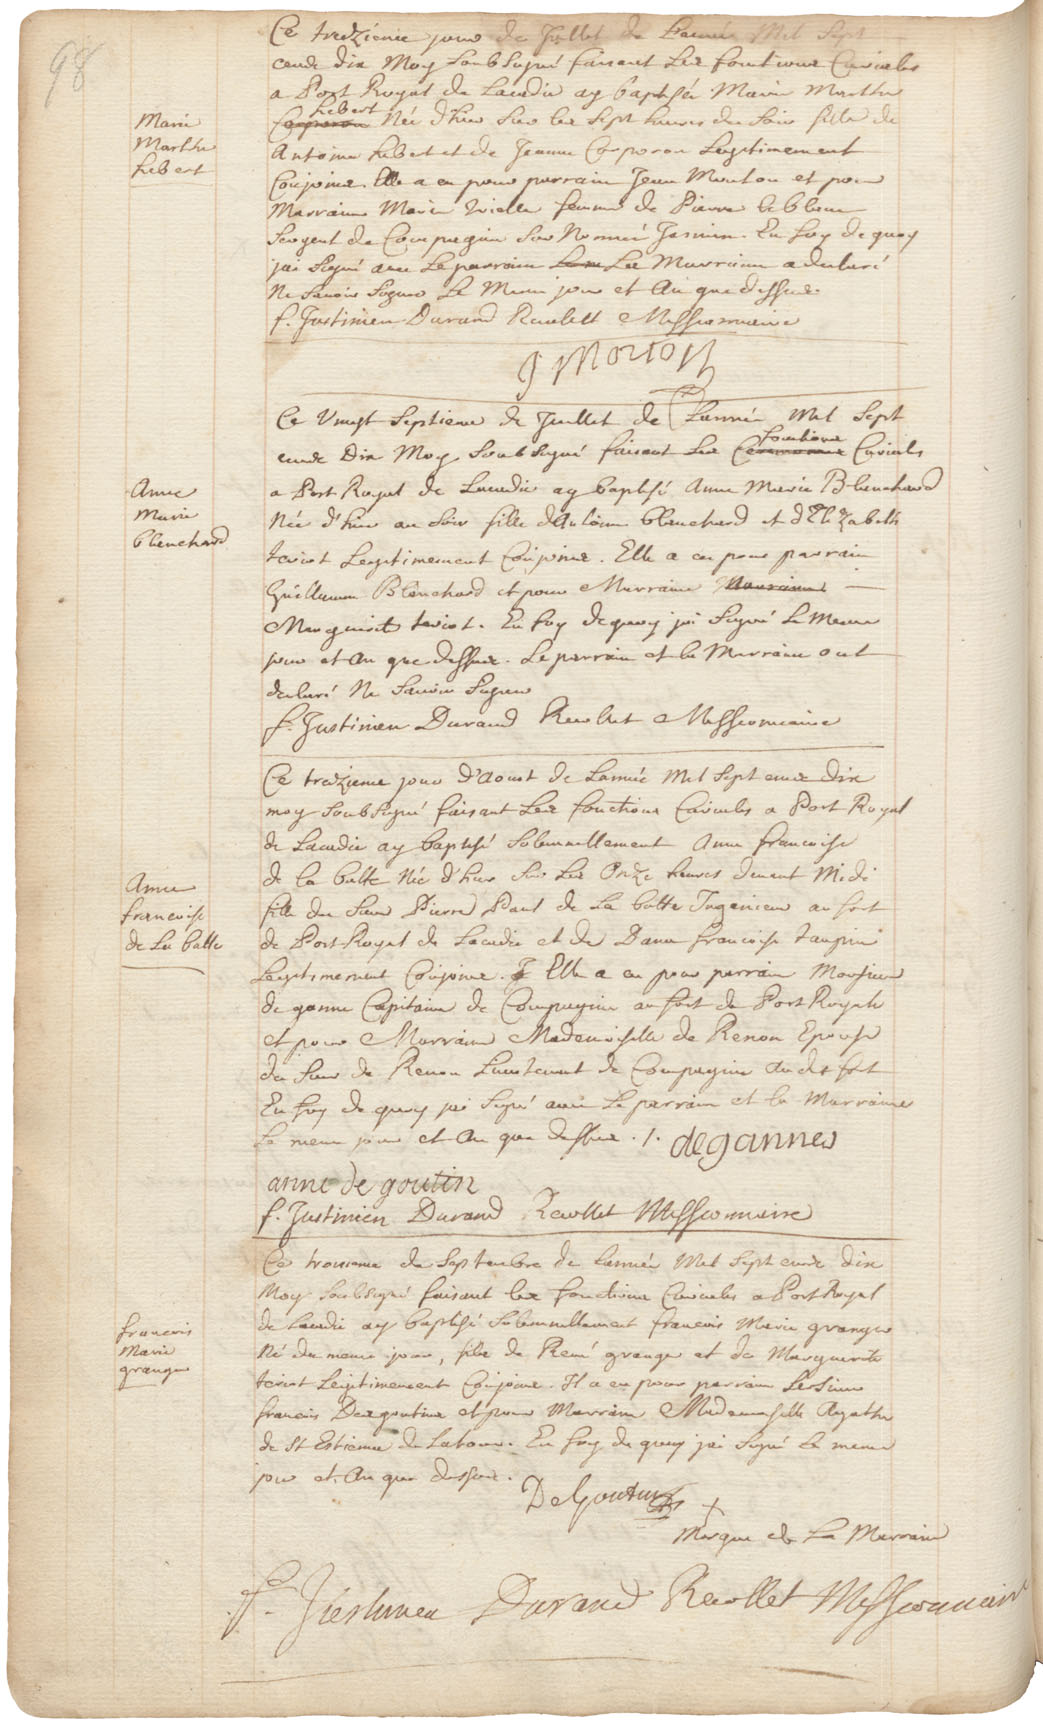 98
Marie
Marthe
hebert
Ce treziéme jour de Juillet de Lannée Mil Sept
cents dix Moy SoubSigné faisant Les fonctions Curiales
a Port Royal de Lacadie ay baptisé Marie Marthe
hebert
Corporon Née d'hier Sur les Sept heures du Soir fille de
Antoine hebert et de Jeanne Corporon Legitimement
Conjoins. Elle a eu pour parrain Jean Mouton et pour
Marraine Marie Trielle femme de Pierre le blanc
Sergent de Compagnie Sur Nommé Jasmin. En foy de quoy
jai Signé avec Le parrain La Marraine a declaré
Ne Savoir Signer Le Mesme jour et An que dessus.
f. Justinien Durand Recollect Missionnaire
J Morton
Anne
Marie
blanchard
Ce Vingt Septieme de Juillet de Lannée Mil Sept
cents Dix Moy SoubSigné faisant Les fonctions Curiales
a Port Royal de Lacadie ay baptisé Anne Marie Blanchard
Née d'hier au Soir fille d'Antoine blanchard et d'Elizabeth
teriot Legitimement Conjoins. Elle a eu pour parrain
Guillaume Blanchard et pour Marraine Marraine
Marguerite teriot. En foy de quoy jai Signé Le Mesme
jour et An que dessus. Le parrain et la Marraine ont
declaré Ne Savoir Signer
f. Justinien Durand Recollect Missionnaire
Anne
francoise
de La batte
Ce trezieme jour d'Aoust de Lannée Mil Sept cents dix
moy SoubSigné faisant Les fonctions Curiales a Port Royal
de Lacadie ay baptisé Solennellement Anne francoise
de la batte Née d'hier Sur Les Onze heures devant Midi
fille du Sieur Pierre Paul de La batte Ingenieur au fort
de Port Royal de Lacadie et de Dame francoise taupin
Legitimement Conjoins. Elle a eu pour parrain Monsieur
de ganne Capitaine de Compagnie au fort de Port Royal
et pour Marraine Mademoiselle de Renon Epouse
du Sieur de Renon Lieutenant de Compagnie audit fort
En foy de quoy jai Signé avec Le parrain et la Marraine
Le mesme jour et An que dessus ./. degannes
anne de goutin
f. Justinien Durand Recollet Missionnaire
francois
Marie
grange
Ce troisieme de Septembre de Lannée Mil Sept cents dix
Moy SoubSigné faisant les fonctions Curiales a Port Royal
de Lacadie ay baptisé Solennellement francois Marie grange
Né du mesme jour, fils de René grange et de Marguerite
teriot Legitimement Conjoins. Il a eu pour parrain Le Sieur
francois Desgoutins et pour Marraine Mademoiselle Agathe
de St Estienne de Latour. En foy de quoy jai Signé Le mesme
jour et An que dessus.
DeGoutin
+
Marque de La Marraine
f. Justinien Durand Recollet Missionnaire